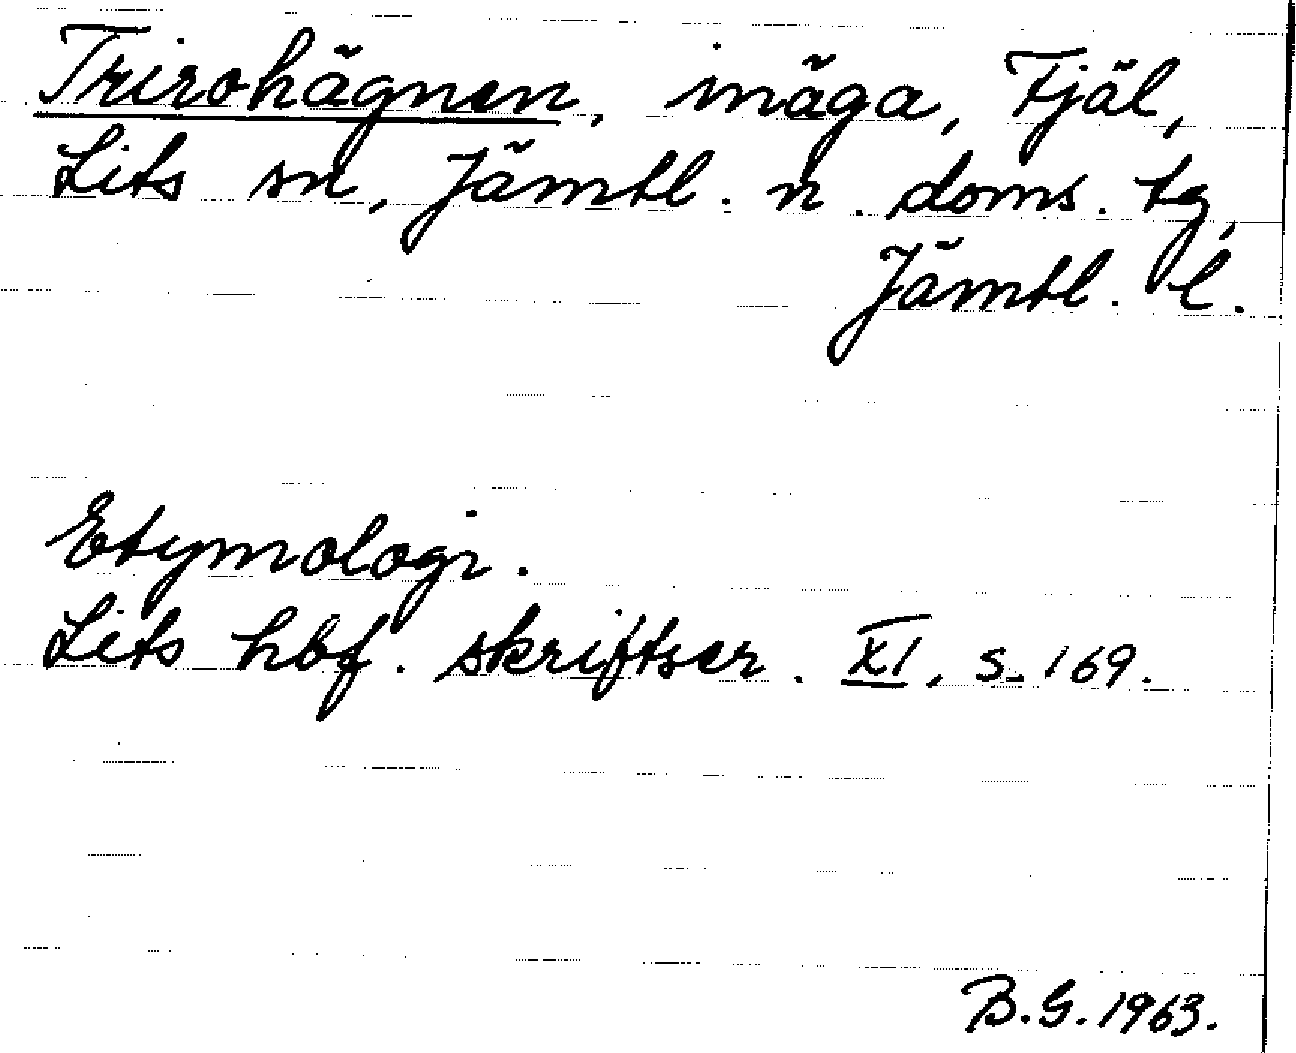 Trirohägnen, inäga, Fjäl,
Lits sn, Jämtl. n. doms. tg,
Jämtl. l.
Etymologi.
Lits hbf. skriftser. XI, s. 169.
B.G. 1963.